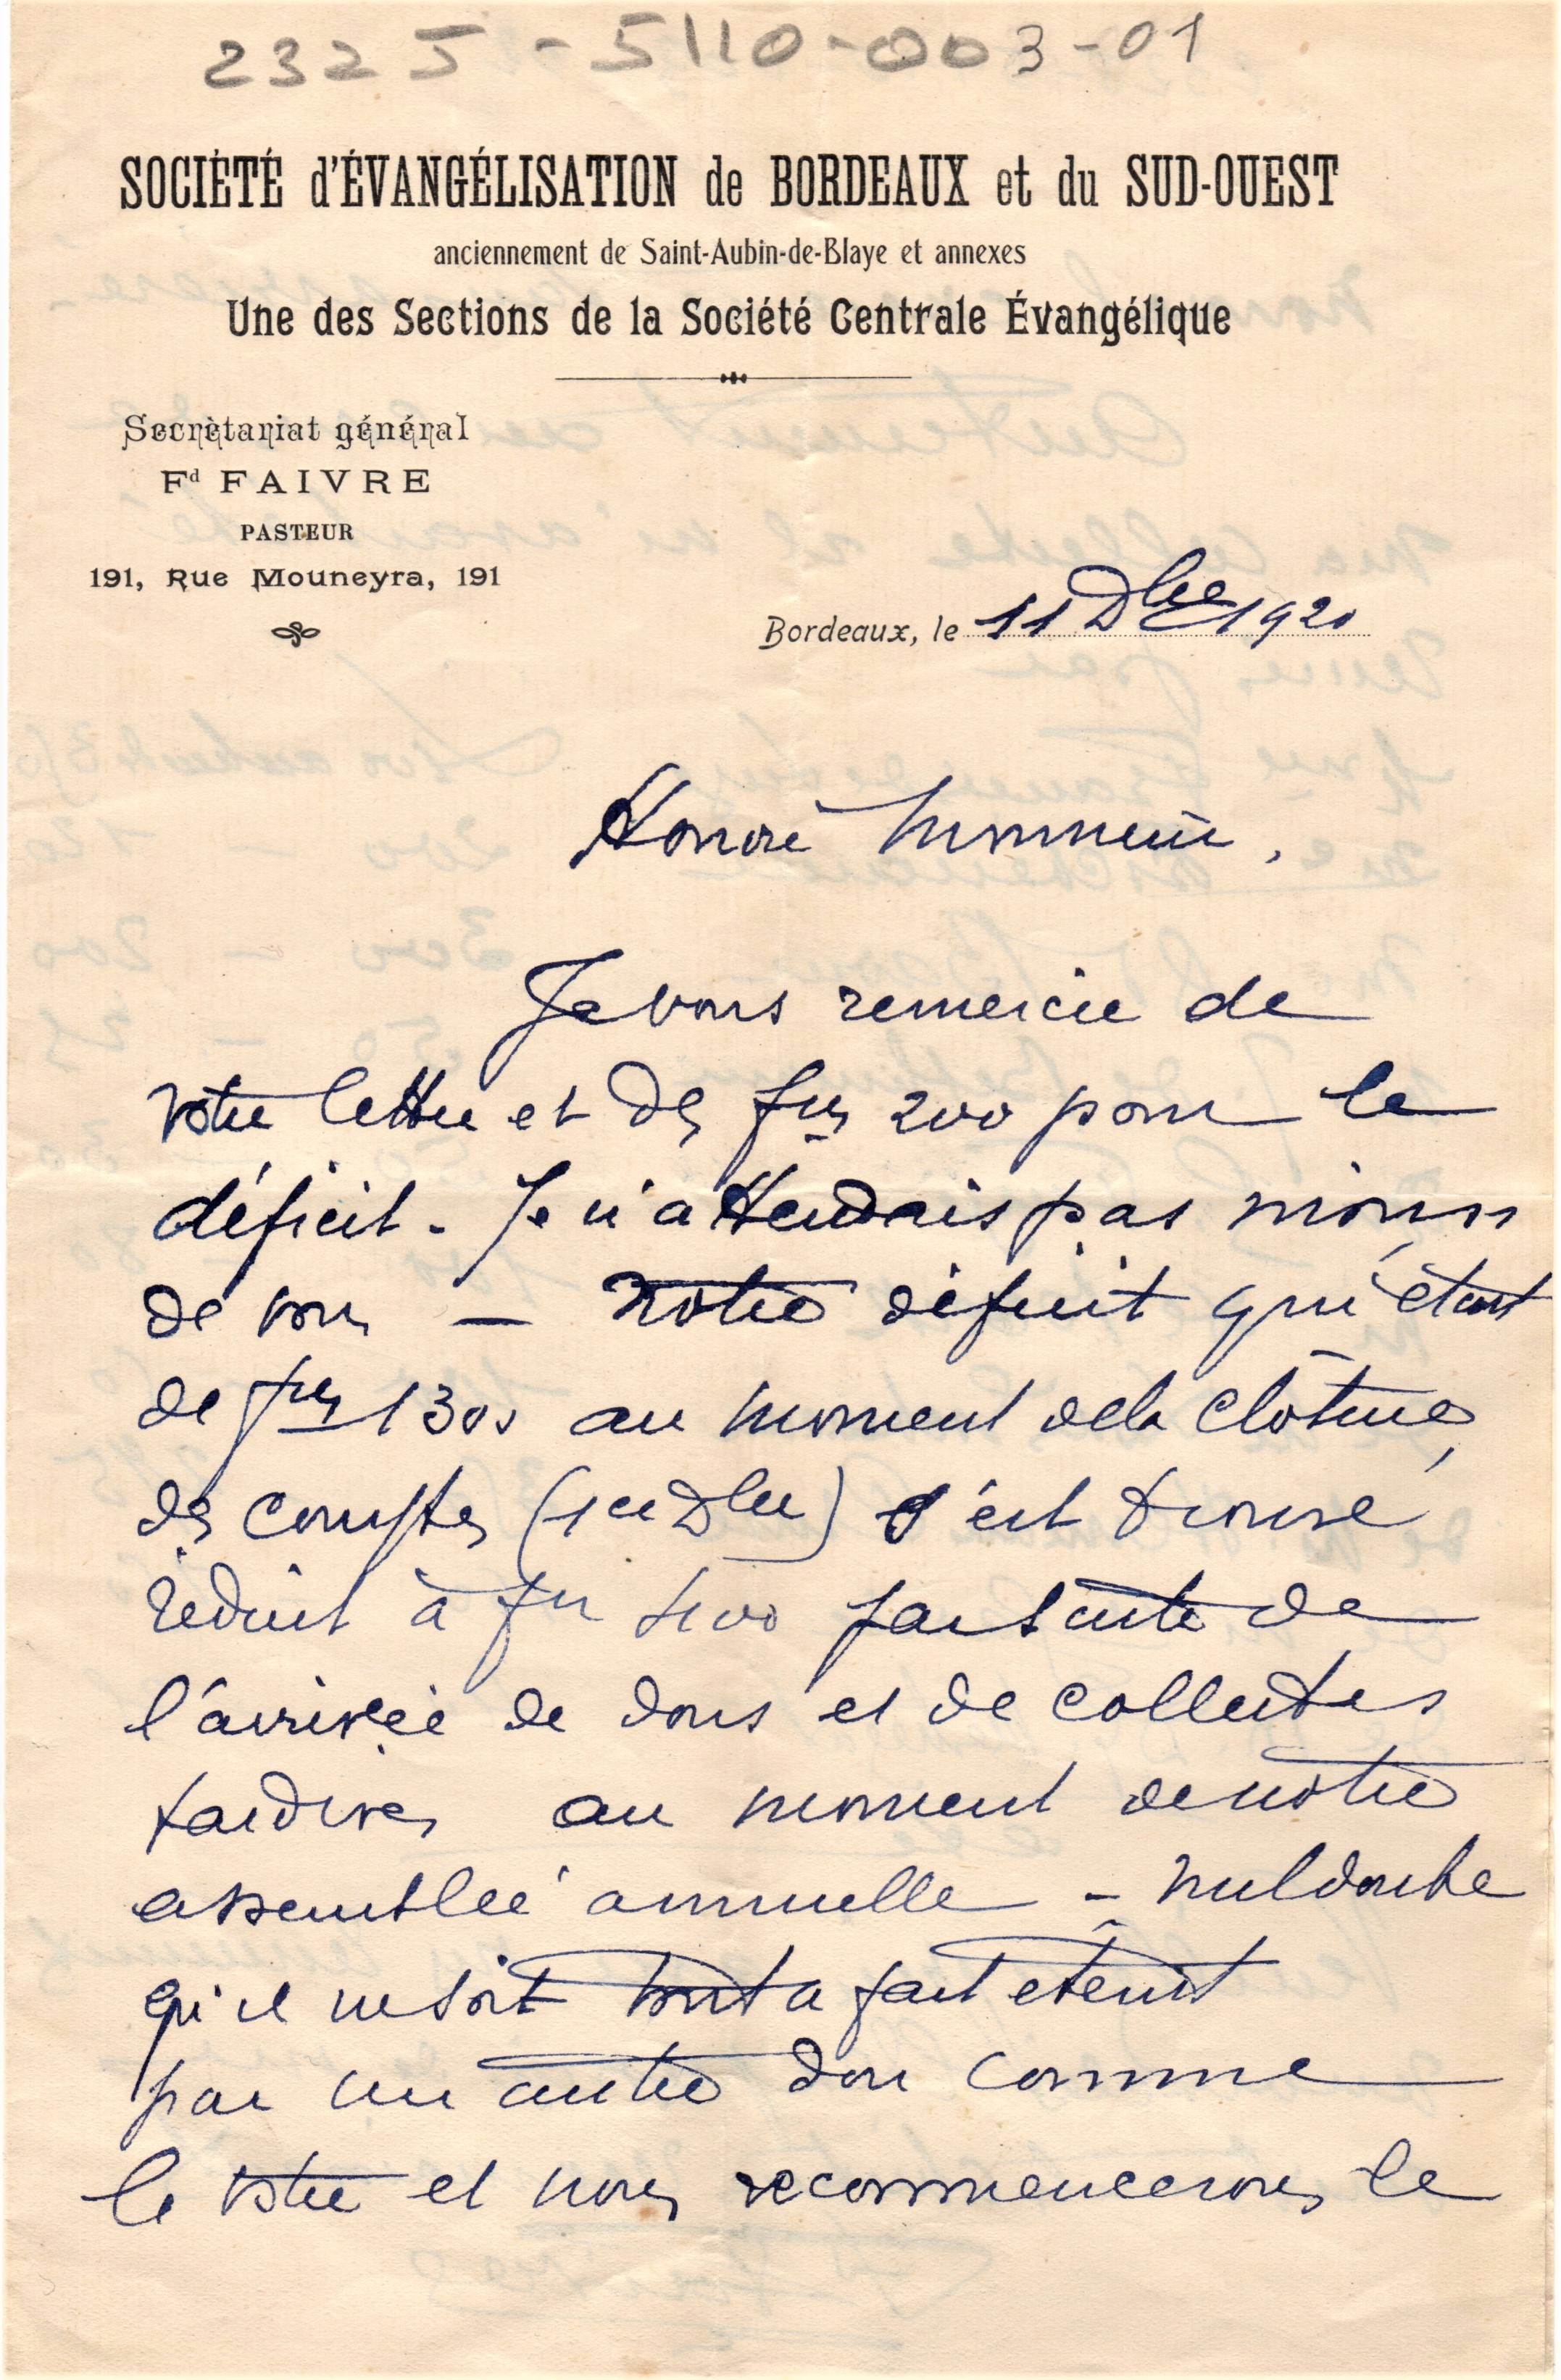 2325-5110-003-01
SOCIÉTÉ d'ÉVANGÉLISATION de BORDEAUX et du SUD-OUEST
anciennement de Saint-Aubin-de-Blaye et annexes
Une des Sections de la Société Centrale Évangélique
Secrètariat général
Fd FAIVRE
PASTEUR
191, Rue Mouneyra, 191
Bordeaux, le 11 Dbre 1920
Honoré Monsieur,
Je vous remercie de
votre lettre et des frs 200 pour le
déficit. Je n'attendais pas moins
de vous — Notre déficit qui était
de frs 1300 au moment de la clôture
des comptes (1er Dbre) s'est trouvé
réduit à frs par suite de
l'arrivée de dons et de collectes
tardives au moment de notre
assemblée annuelle - Nul doute
qu'il ne soit tout a fait éteint
par un autre don comme
le votre et nous recommencerons le